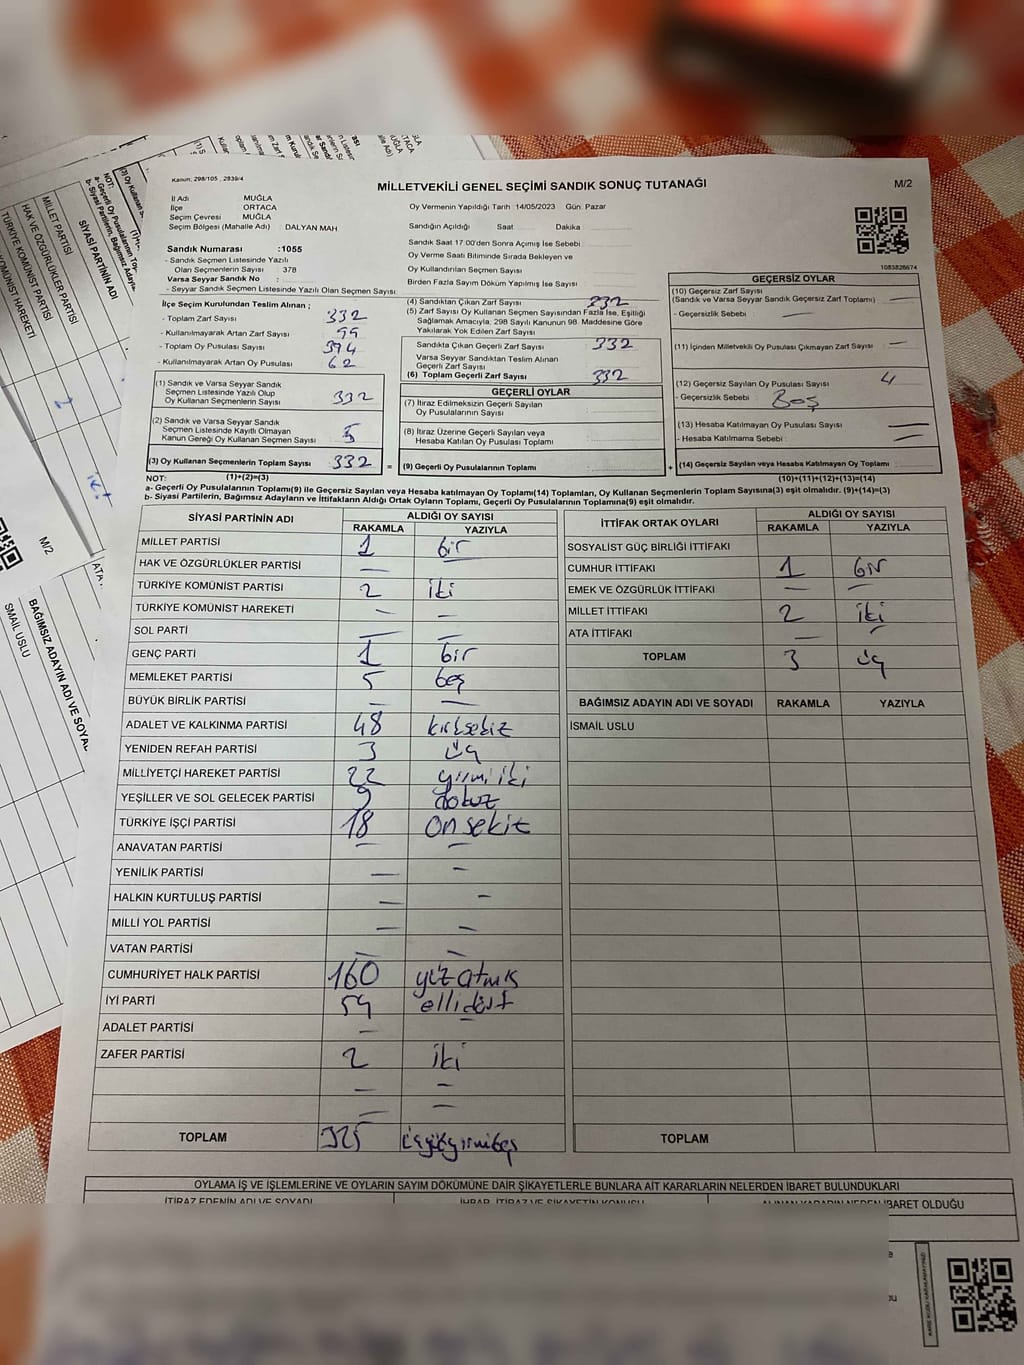 Kanun: 298/105 , 2839/4
MİLLETVEKİLİ GENEL SEÇİMİ SANDIK SONUÇ TUTANAĞI
M/2
İl Adı MUĞLA
İlçe ORTACA
Seçim Çevresi MUĞLA
Seçim Bölgesi (Mahalle Adı) DALYAN MAH
Sandık Numarası :1055
- Sandık Seçmen Listesinde Yazılı
Olan Seçmenlerin Sayısı : 378
Varsa Seyyar Sandık No :
- Seyyar Sandık Seçmen Listesinde Yazılı Olan Seçmen Sayısı
Oy Vermenin Yapıldığı Tarih :14/05/2023 Gün: Pazar
Sandığın Açıldığı Saat Dakika
Sandık Saat 17.00'den Sonra Açımış İse Sebebi
Oy Verme Saati Bitiminde Sırada Bekleyen ve
Oy Kullandırılan Seçmen Sayısı
Birden Fazla Sayım Döküm Yapılmış İse Sayısı
1083826674
İlçe Seçim Kurulundan Teslim Alınan ;
- Toplam Zarf Sayısı : 332
- Kullanılmayarak Artan Zarf Sayısı : 99
- Toplam Oy Pusulası Sayısı : 394
- Kullanılmayarak Artan Oy Pusulası : 62
(1) Sandık ve Varsa Seyyar Sandık
Seçmen Listesinde Yazılı Olup
Oy Kullanan Seçmenlerin Sayısı 332
(2) Sandık ve Varsa Seyyar Sandık
Seçmen Listesinde Kayıtlı Olmayan
Kanun Gereği Oy Kullanan Seçmen Sayısı 5
(3) Oy Kullanan Seçmenlerin Toplam Sayısı 332
(4) Sandıktan Çıkan Zarf Sayısı 332
(5) Zarf Sayısı Oy Kullanan Seçmen Sayısından Fazla İse, Eşitliği
Sağlamak Amacıyla; 298 Sayılı Kanunun 98. Maddesine Göre
Yakılarak Yok Edilen Zarf Sayısı
Sandıkta Çıkan Geçerli Zarf Sayısı 332
Varsa Seyyar Sandıktan Teslim Alınan
Geçerli Zarf Sayısı
(6) Toplam Geçerli Zarf Sayısı 332
GEÇERLİ OYLAR
(7) İtiraz Edilmeksizin Geçerli Sayılan
Oy Pusulalarının Sayısı
(8) İtiraz Üzerine Geçerli Sayılan veya
Hesaba Katılan Oy Pusulası Toplamı
= (9) Geçerli Oy Pusulalarının Toplamı +
GEÇERSİZ OYLAR
(10) Geçersiz Zarf Sayısı
(Sandık ve Varsa Seyyar Sandık Geçersiz Zarf Toplamı) —
- Geçersizlik Sebebi : —
(11) İçinden Milletvekili Oy Pusulası Çıkmayan Zarf Sayısı —
(12) Geçersiz Sayılan Oy Pusulası Sayısı 4
- Geçersizlik Sebebi : Boş
(13) Hesaba Katılmayan Oy Pusulası Sayısı —
- Hesaba Katılmama Sebebi : —
(14) Geçersiz Sayılan veya Hesaba Katılmayan Oy Toplamı
NOT: (1)+(2)=(3) (10)+(11)+(12)+(13)=(14)
a- Geçerli Oy Pusulalarının Toplamı(9) ile Geçersiz Sayılan veya Hesaba katılmayan Oy Toplam(14) Toplamları, Oy Kullanan Seçmenlerin Toplam Sayısına(3) eşit olmalıdır. (9)+(14)=(3)
b- Siyasi Partilerin, Bağımsız Adayların ve İttifakların Aldığı Ortak Oyların Toplamı, Geçerli Oy Pusulalarının Toplamına(9) eşit olmalıdır.
SİYASİ PARTİNİN ADI ALDIĞI OY SAYISI
RAKAMLA YAZIYLA
MİLLET PARTİSİ 1 bir
HAK VE ÖZGÜRLÜKLER PARTİSİ —
TÜRKİYE KOMÜNİST PARTİSİ 2 iki
TÜRKİYE KOMÜNİST HAREKETİ — —
SOL PARTİ — —
GENÇ PARTİ 1 bir
MEMLEKET PARTİSİ 5 beş
BÜYÜK BİRLİK PARTİSİ — —
ADALET VE KALKINMA PARTİSİ 48 kırksekiz
YENİDEN REFAH PARTİSİ 3 üç
MİLLİYETÇİ HAREKET PARTİSİ 22 yirmi iki
YEŞİLLER VE SOL GELECEK PARTİSİ 9 dokuz
TÜRKİYE İŞÇİ PARTİSİ 18 onsekiz
ANAVATAN PARTİSİ — —
YENİLİK PARTİSİ — —
HALKIN KURTULUŞ PARTİSİ — —
MİLLİ YOL PARTİSİ — —
VATAN PARTİSİ — —
CUMHURİYET HALK PARTİSİ 160 yüz atmış
İYİ PARTİ 54 ellidört
ADALET PARTİSİ — —
ZAFER PARTİSİ 2 iki
— —
— —
TOPLAM 325 üçyüzyirmibeş
İTTİFAK ORTAK OYLARI ALDIĞI OY SAYISI
RAKAMLA YAZIYLA
SOSYALİST GÜÇ BİRLİĞİ İTTİFAKI
CUMHUR İTTİFAKI 1 bir
EMEK VE ÖZGÜRLÜK İTTİFAKI — —
MİLLET İTTİFAKI 2 iki
ATA İTTİFAKI — —
TOPLAM 3 üç
BAĞIMSIZ ADAYIN ADI VE SOYADI RAKAMLA YAZIYLA
İSMAİL USLU
TOPLAM
OYLAMA İŞ VE İŞLEMLERİNE VE OYLARIN SAYIM DÖKÜMÜNE DAİR ŞİKAYETLERLE BUNLARA AİT KARARLARIN NELERDEN İBARET BULUNDUKLARI
İTİRAZ EDENİN ADI VE SOYADI İHBAR, İTİRAZ VE ŞİKAYETİN KONUSU ALINAN KARARIN NEDEN İBARET OLDUĞU
NOT:
SİYASİ PARTİNİN ADI
MİLLET PARTİSİ
HAK VE ÖZGÜRLÜKLER PARTİSİ
TÜRKİYE KOMÜNİST PARTİSİ
KOMÜNİST HAREKETİ
M/2
BAĞIMSIZ ADAYIN ADI VE SOYAD
SMAİL USLU